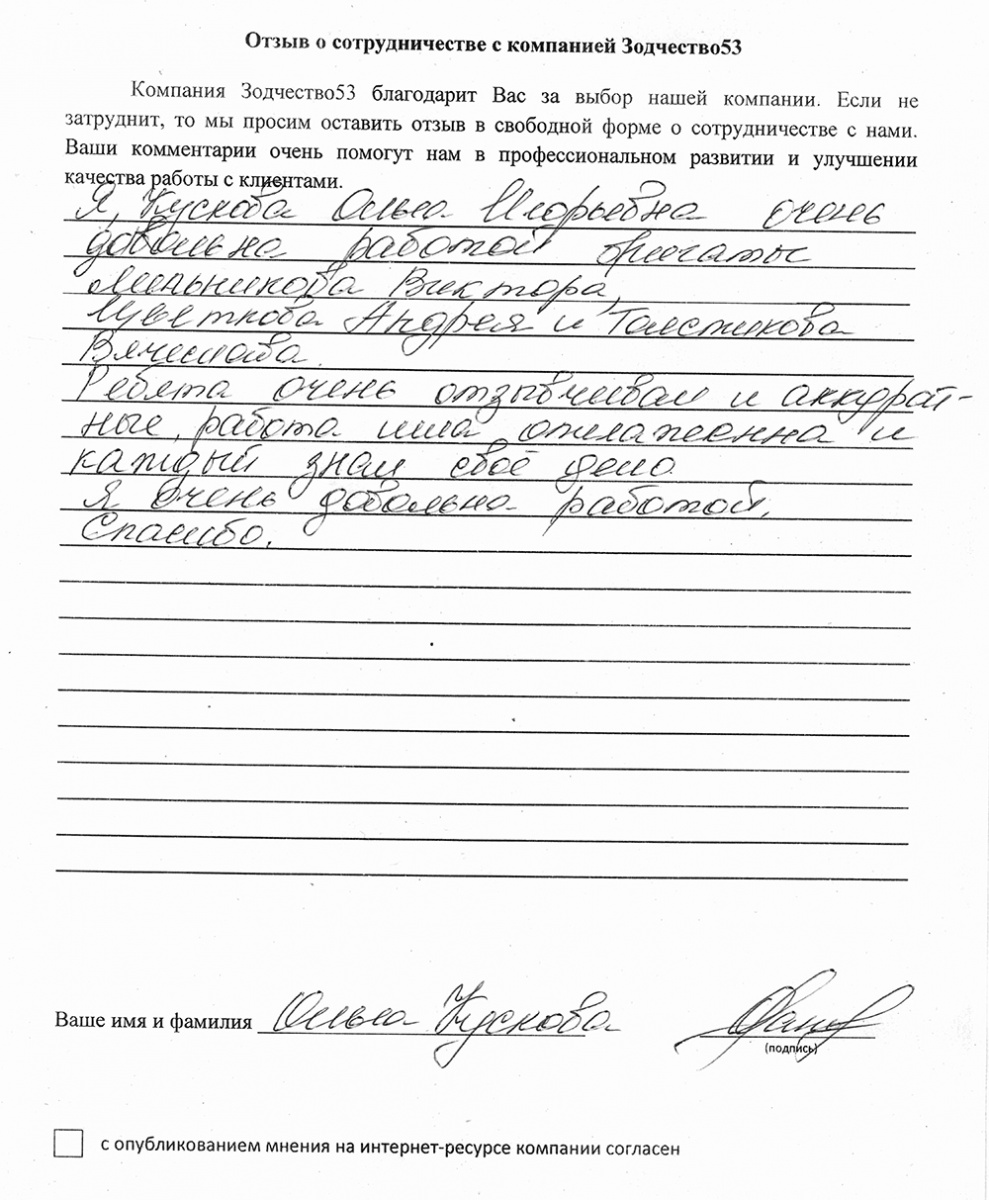 Отзыв о сотрудничестве с компанией Зодчество53
Компания Зодчество53 благодарит Вас за выбор нашей компании. Если не
затруднит, то мы просим оставить отзыв в свободной форме о сотрудничестве с нами.
Ваши комментарии очень помогут нам в профессиональном развитии и улучшении
качества работы с клиентами.
Я, Кускова Ольга Игорьевна очень
довольна работой бригады
Мельникова Виктора,
Цветкова Андрея и Толстикова
Вячеслава.
Ребята очень отзывчивые и аккурат-
ные, работа шла отлаженна и
каждый знал своё дело.
Я очень довольна работой.
Спасибо.
Ваше имя и фамилия Ольга Кускова
(подпись)
с опубликованием мнения на интернет-ресурсе компании согласен